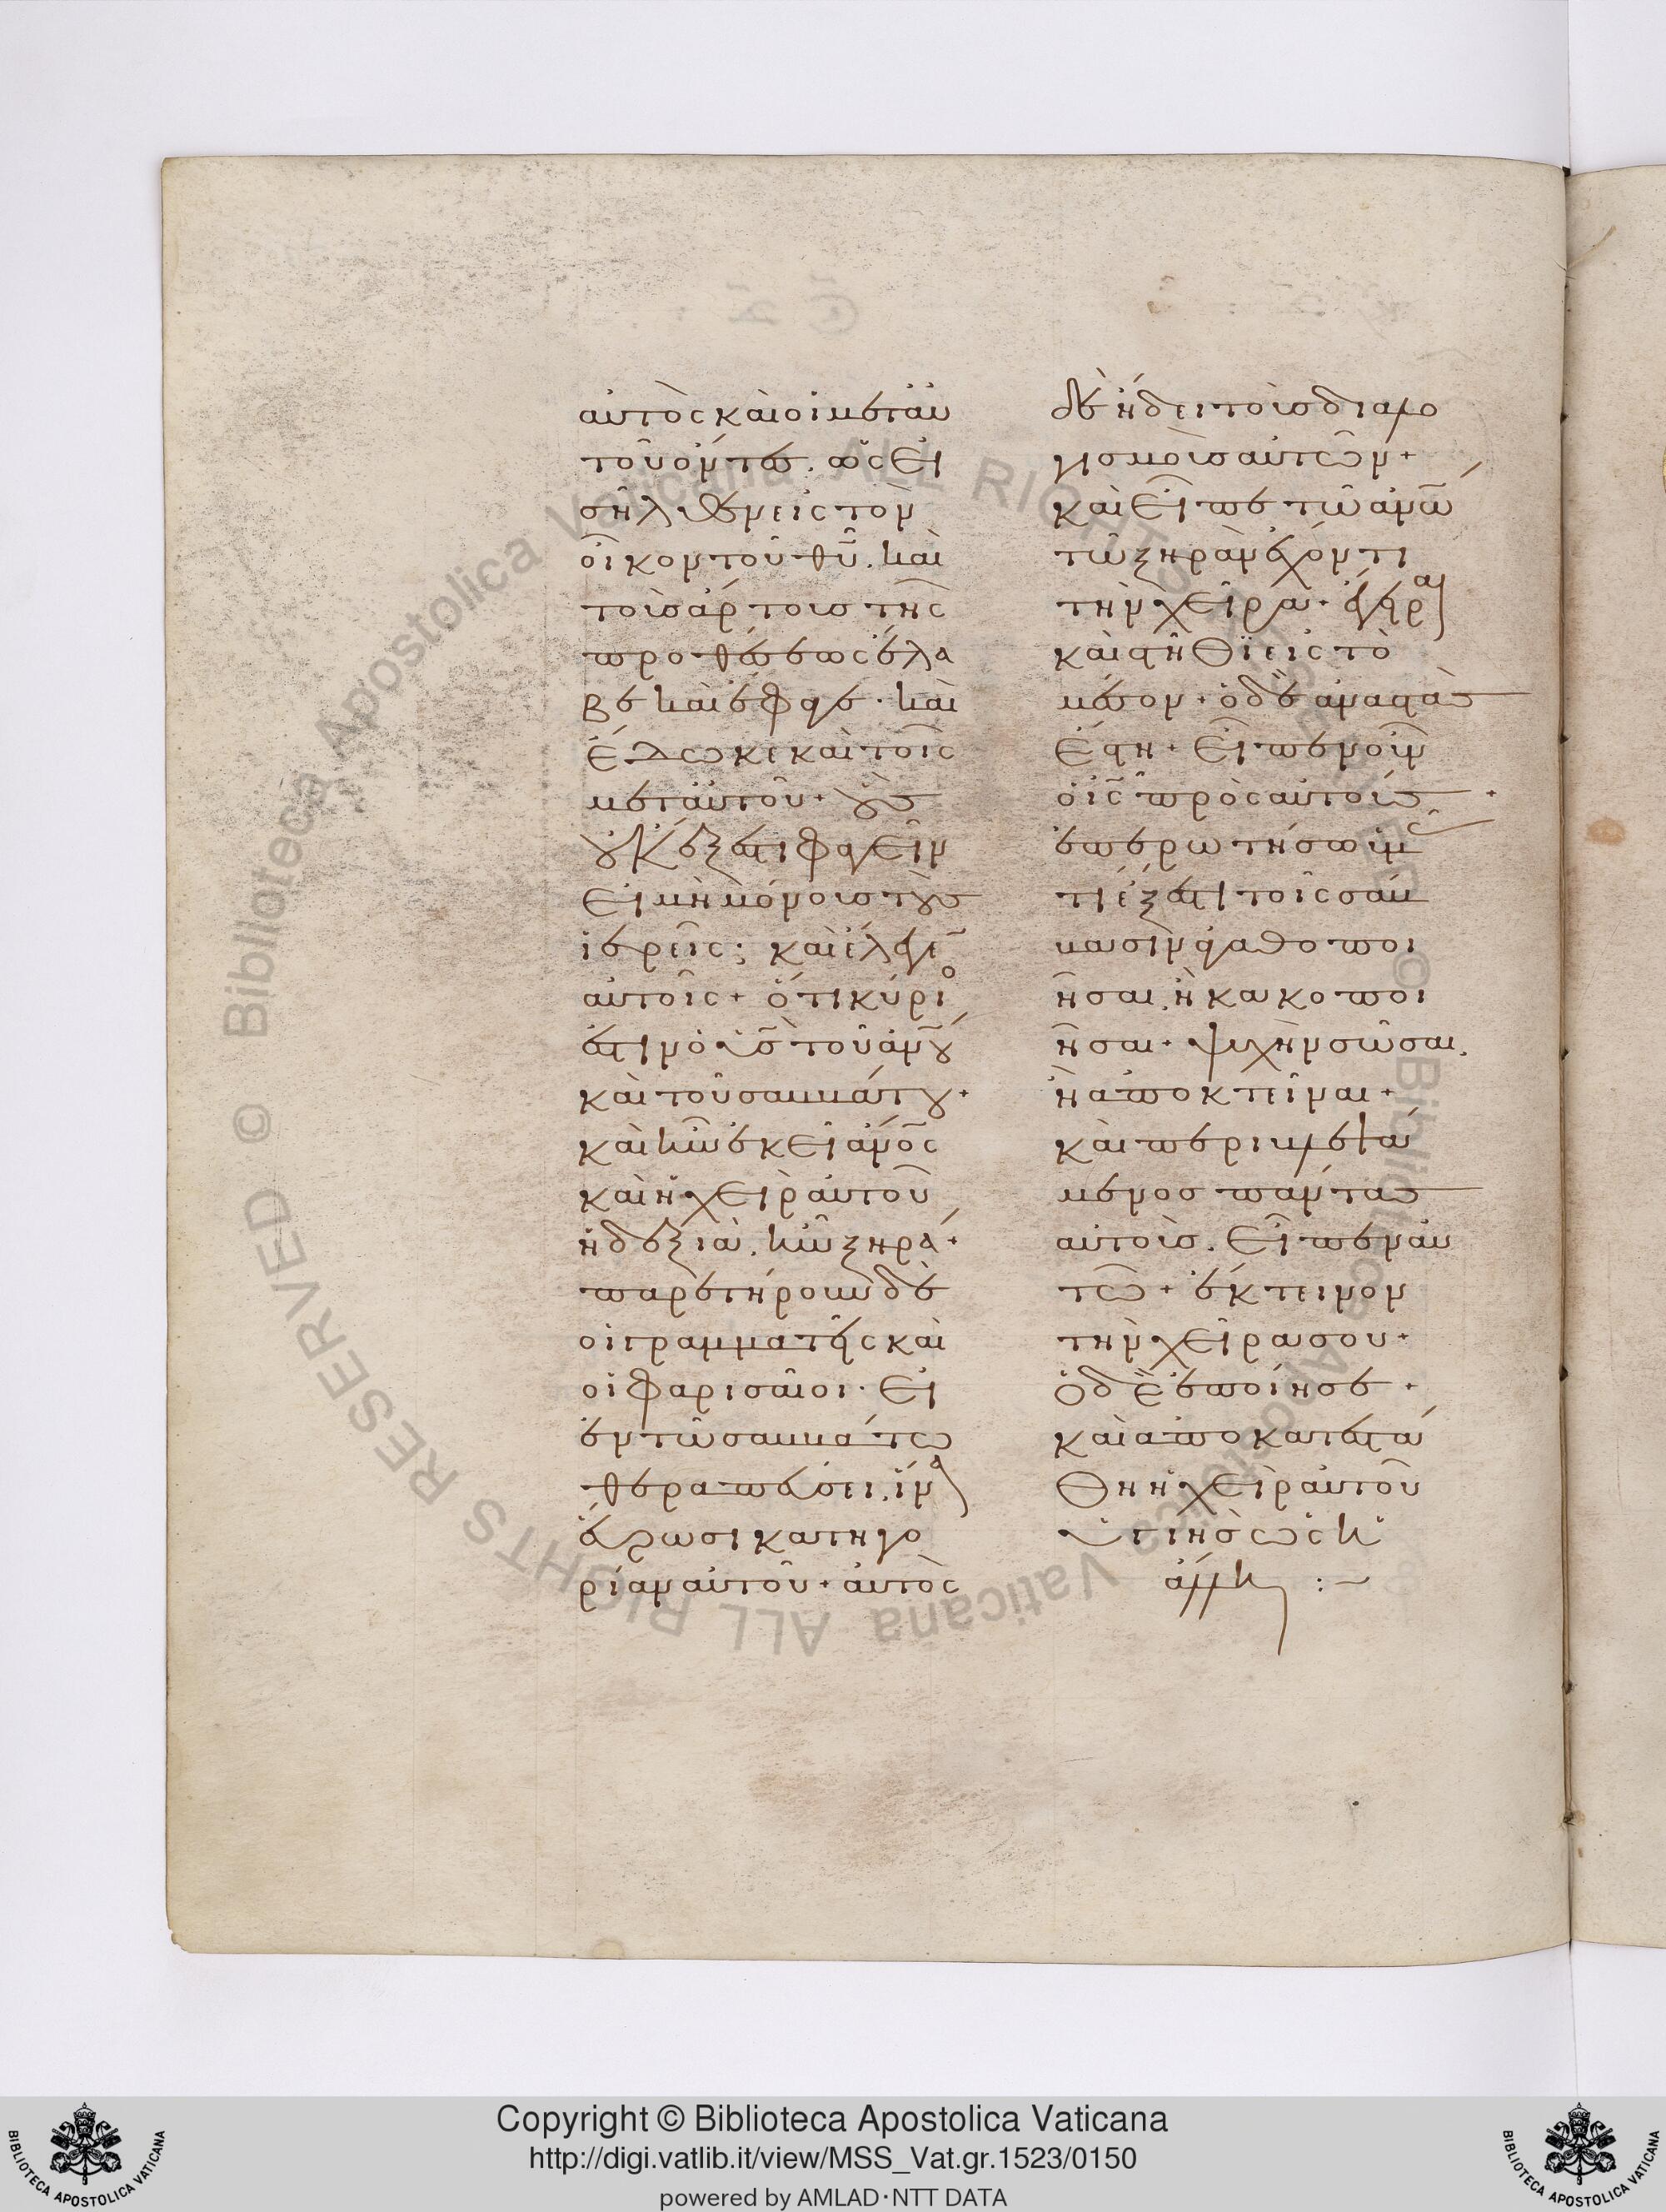 αὐτὸς καὶ οἱ μετ αὐ
τοῦ ὄντες. ὡς εἰ
σῆλθεν εἰς τὸν
οἶκον τοῦ θυ̅. καὶ
τοὺς ἄρτους τῆς
προθέσεως ἔλα
βε καὶ ἔφαγε· καὶ
ἔδωκε καὶ τοῖς
μετ αὐτοῦ + οὓς
οὐκ ἔξεστι φαγεῖν
εἰ μὴ μόνους τοὺς
ἱερεῖς; καὶ ἔλεγε̅
αὐτοῖς + ὅτι κύριο
ἐστιν ὁ υς̅ τοῦ ἀνου̅
καὶ τοῦ σαββάτου +
καὶ ἦν ἐκεῖ ἄνος̅
καὶ ἡ χεὶρ αὐτοῦ
ἡ δεξιὰ. ἦν ξηρά +
παρετήρουν δὲ
οἱ γραμματεῖς καὶ
οἱ φαρισαῖοι· εἰ
ἐν τῶ σαββάτω
θεραπεύσει. ἵνα
εὕρωσι κατηγο
ρίαν αὐτοῦ + αὐτὸς
δὲ ἤδει τοὺς διαλο
γισμοὺς αὐτῶν +
καὶ εἶπε τῶ ἀνω̅
τῶ ξηρὰν ἔχοντι
τὴν χεῖρα + ἔγειραι
καὶ στῆθι εἰς τὸ
μέσον + ὁ δὲ ἀναστὰς
ἔστη + εἶπεν οὖν
ὁ ις̅ πρὸς αὐτούς +
ἐπερωτήσω ὑμᾶς
τί ἔξεστι τοῖς σάβ
βασιν ἀγαθοποι
ῆσαι. ἢ κακοποι
ῆσαι + ψυχὴν σῶσαι.
ἢ ἀποκτεῖναι +
καὶ περιβλεψά
μενος πάντας
αὐτοὺς. εἶπεν αὐ
τῶ + ἔκτεινον
τὴν χεῖρά σου +
ὁ δὲ ἐποίησε +
καὶ ἀποκατεστά
θη ἡ χεὶρ αὐτοῦ
ὑγιὴς ὡς ἡ
ἄλλη :~
Copyright © Biblioteca Apostolica Vaticana
http://digi.vatlib.it/view/MSS_Vat.gr.1523/0150
powered by AMLAD·NTT DATA
BIBLIOTECA APOSTOLICA VATICANA
BIBLIOTECA APOSTOLICA VATICANA
© Biblioteca Apostolica Vaticana ALL RIGHTS RESERVED
© Biblioteca Apostolica Vaticana ALL RIGHTS RESERVED